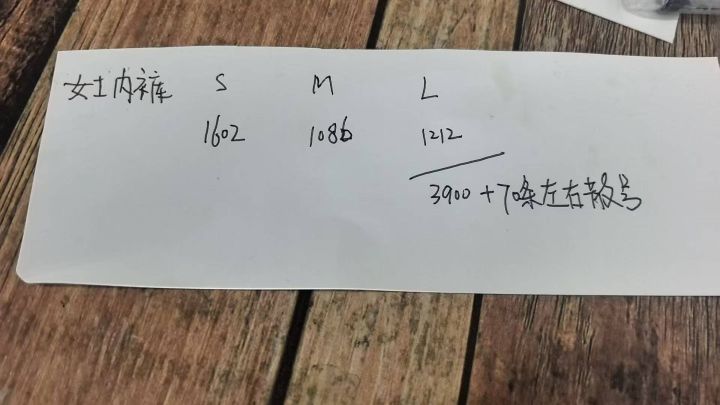 女士内裤 S M L
1602 1086 1212
3900+70条左右散号